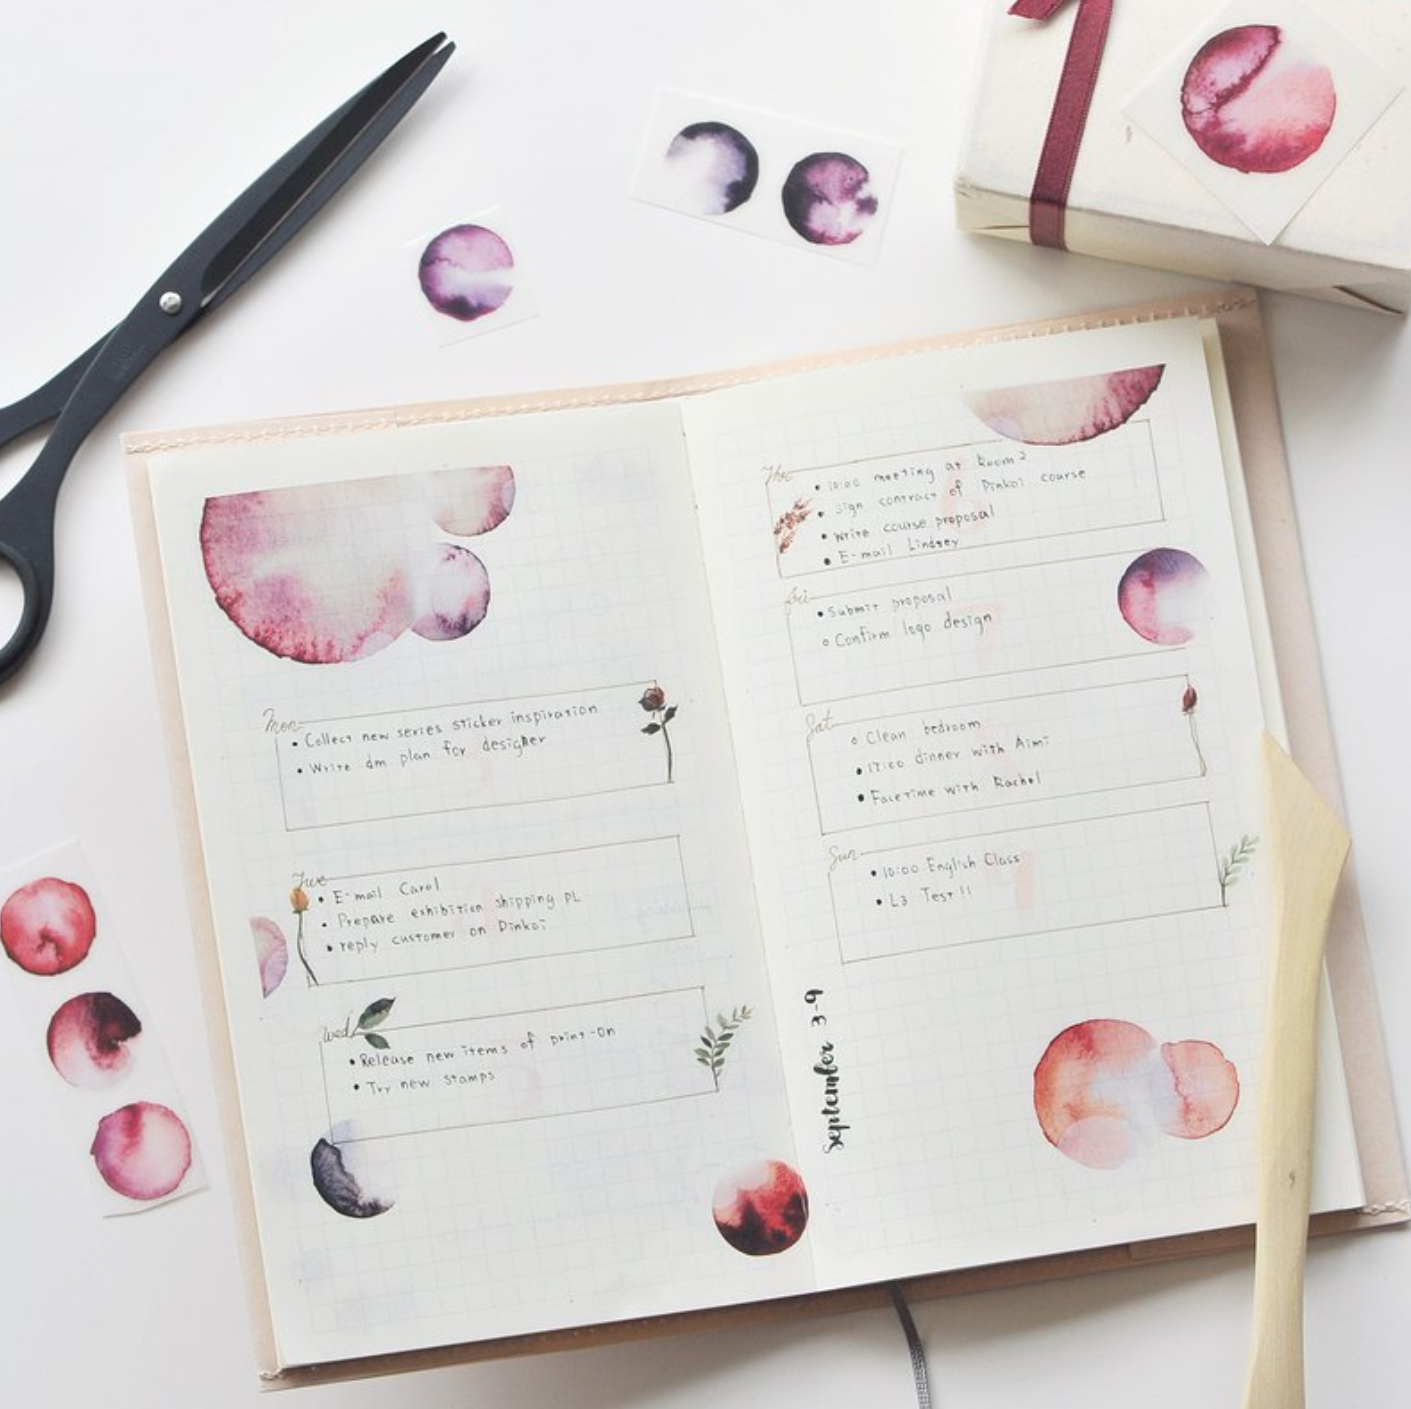 Mon
• Collect new series sticker inspiration
• Write dm plan for designer
Tue
• E-mail Carol
• Prepare exhibition shipping PL
• reply customer on Pinkoi
Wed
• Release new items of print-on
• Try new stamps
Thu
• 10:00 meeting at Room 2
• Sign contract of Pinkoi course
• Write course proposal
• E-mail Lindsey
Fri
• Submit proposal
○ Confirm logo design
Sat
○ Clean bedroom
• 17:00 dinner with Aimi
• Facetime with Rachel
Sun
• 10:00 English Class
• L3 Test!!
September 3-9